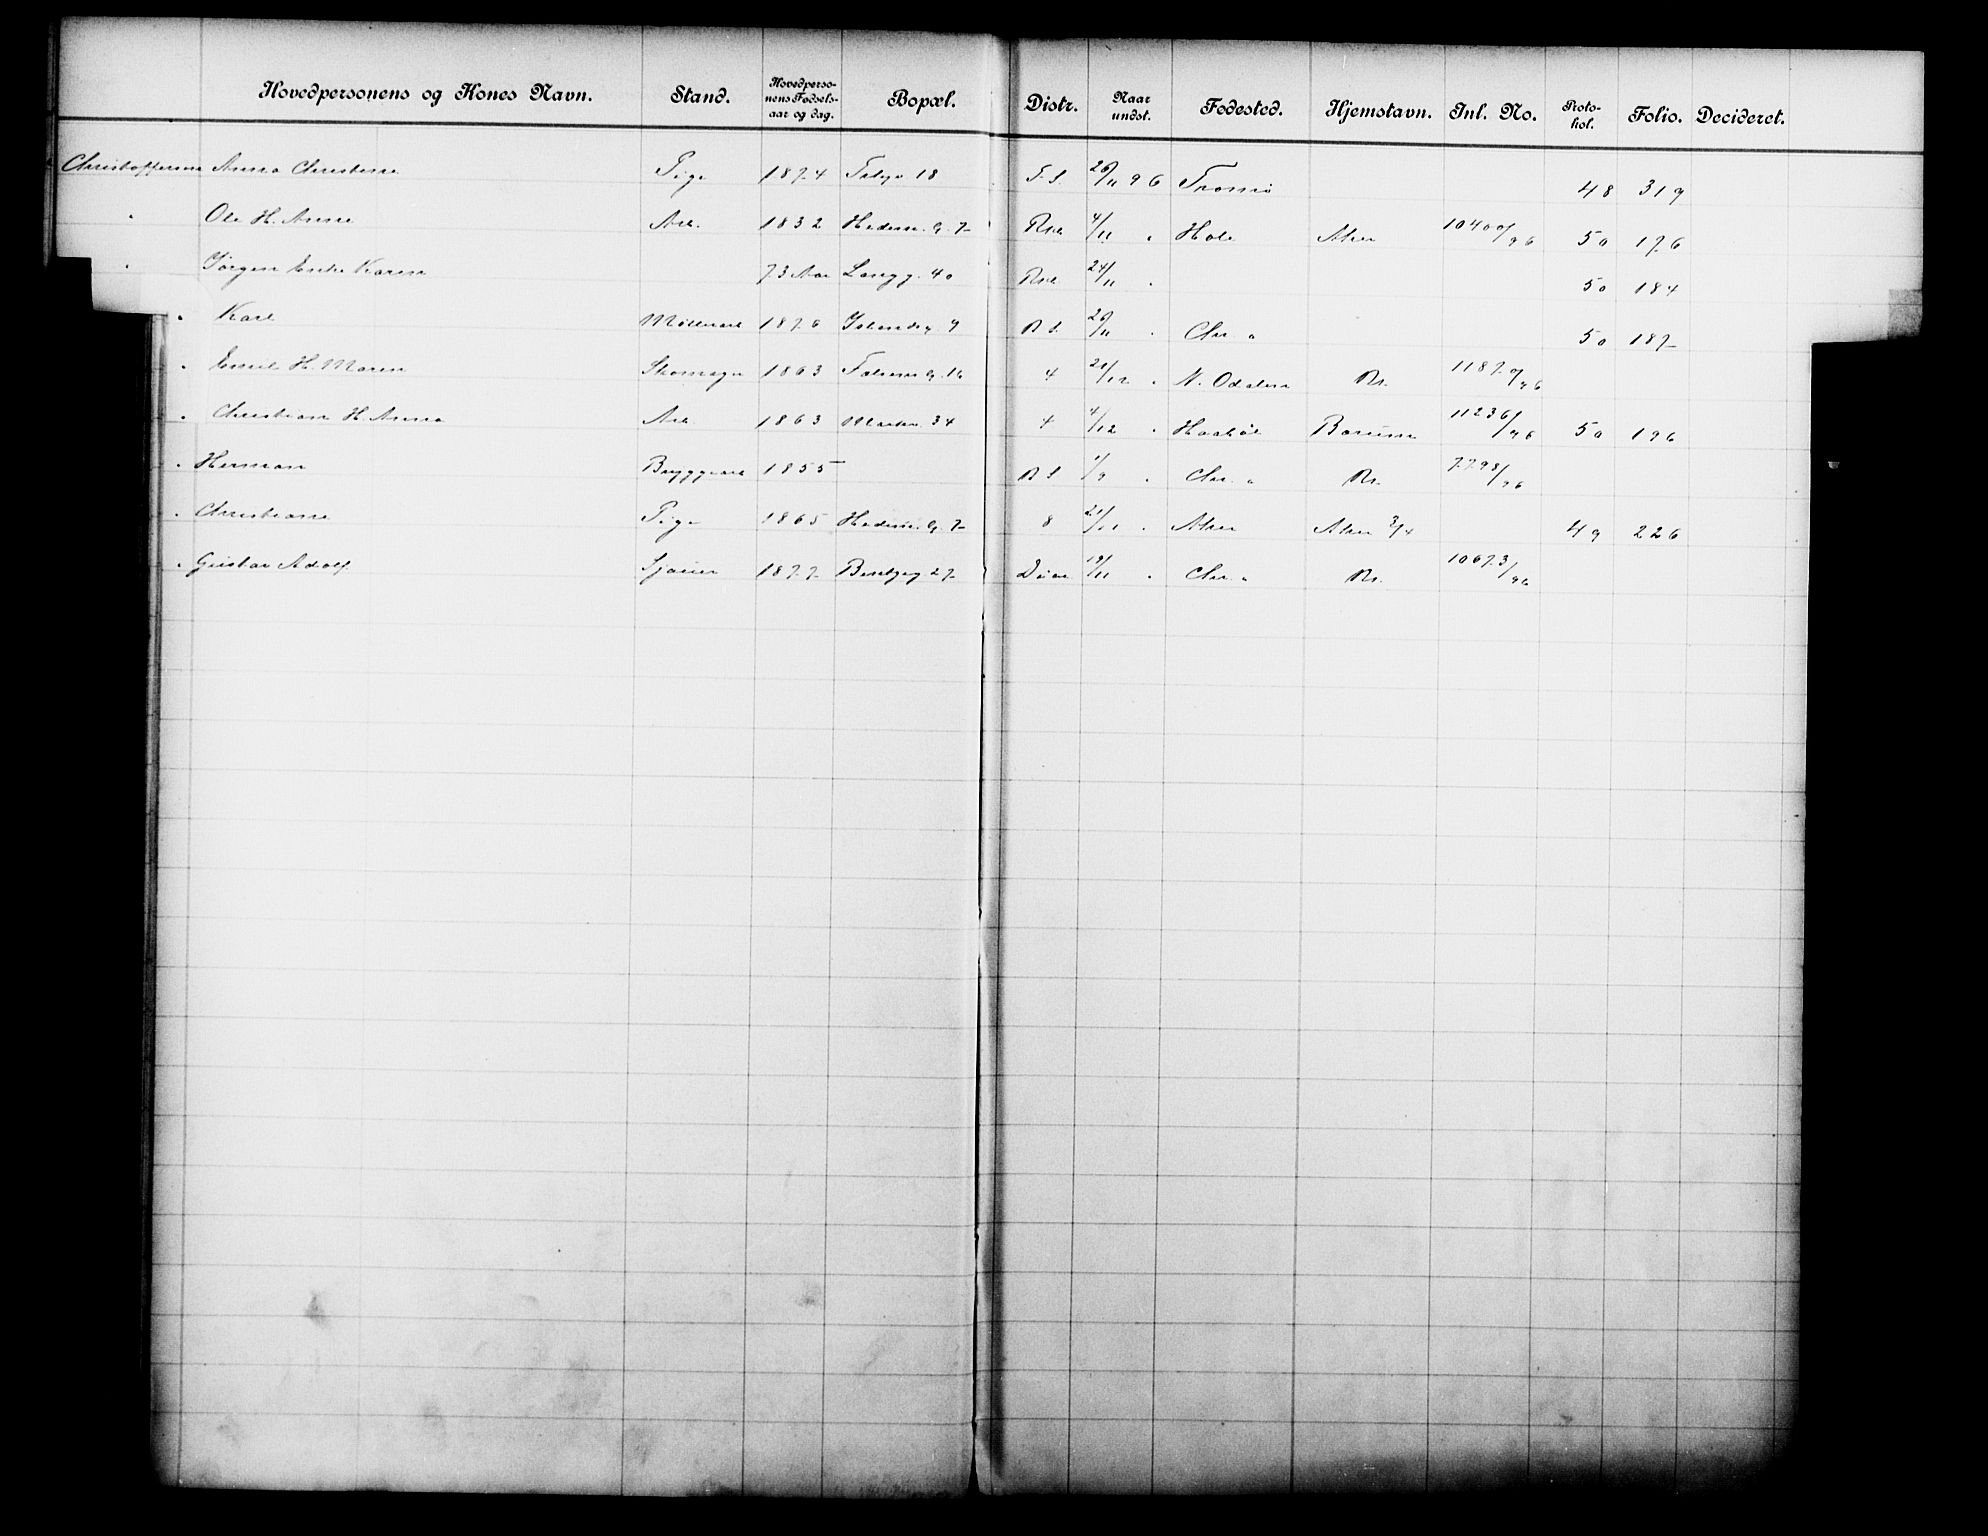 Hovedpersonens og Kones Navn. Stand. Hovedperso-nens Fødsels-aar og dag. Bopæl. Distr. Naar undst. Fødested. Hjemstavn. Inl. No. Proto-kol. Folio. Decideret.
Christoffersen Anna Christine Pige 1874 18 F.S. 26/11 96 Tromsø 48 319
" Ole H. Anne Arb. 1832 Hedem. G. 7 Rsk 4/11 " Hole Aker 10400/96 50 176
" Jørgen Enke Karen 73 Aar Langg. 40 Rsk 24/11 " 50 184
" Karl Møllearb 1876 9 B.S. 26/11 " Chr. a 50 187
" Emil H. Maren Skomager 1863 Falsens G. 16 4 21/12 " N. Odalen Bs. 11870/96
" Christian H. Anna Arb 1863 Markv. 34 4 4/12 " Haabøl Bærum 11236/96 50 196
" Herman Bryggearb 1855 B S 1/9 " Chr. a Bs. 7798/96
" Christiane Pige 1865 Hedem. G. 7 8 21/11 " Aker Aker 3/4 49 226
" Gustav Adolf Sjauer 1877 27 19/11 " Chr. a Bs. 10673/96